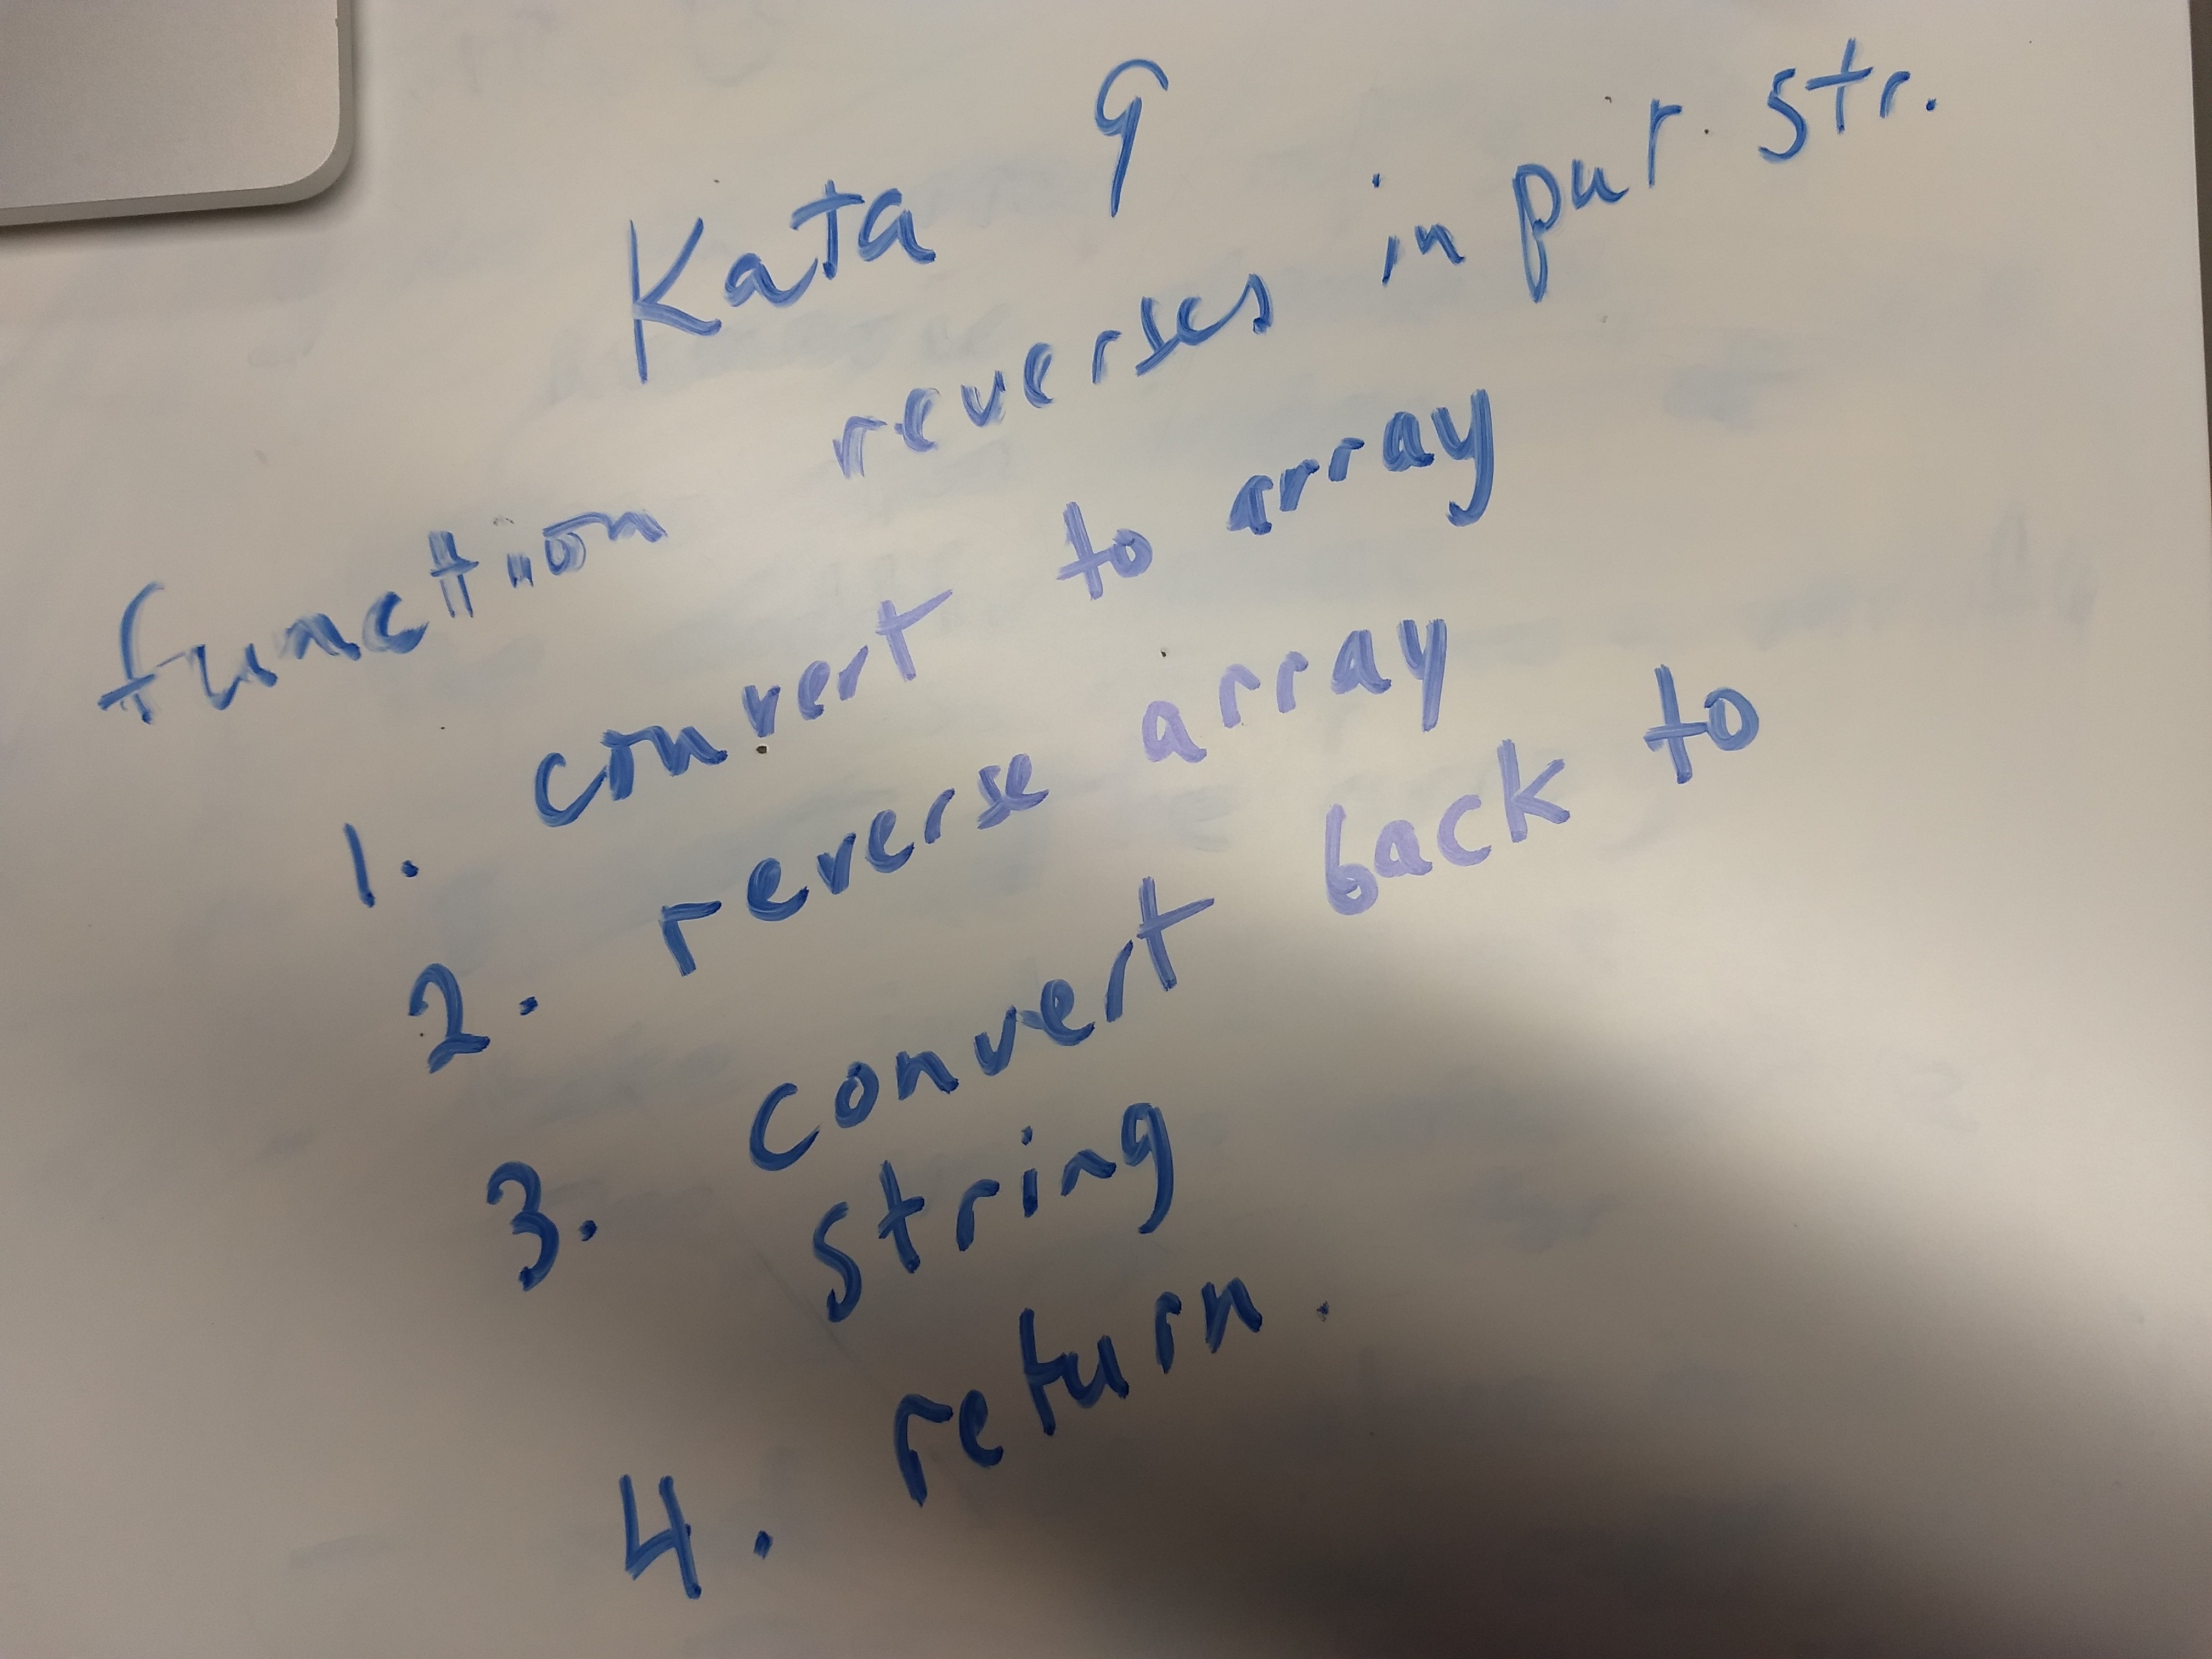 Kata 9
function reverses input str.
1. convert to array
2. reverse array
3. convert back to
string
4. return.